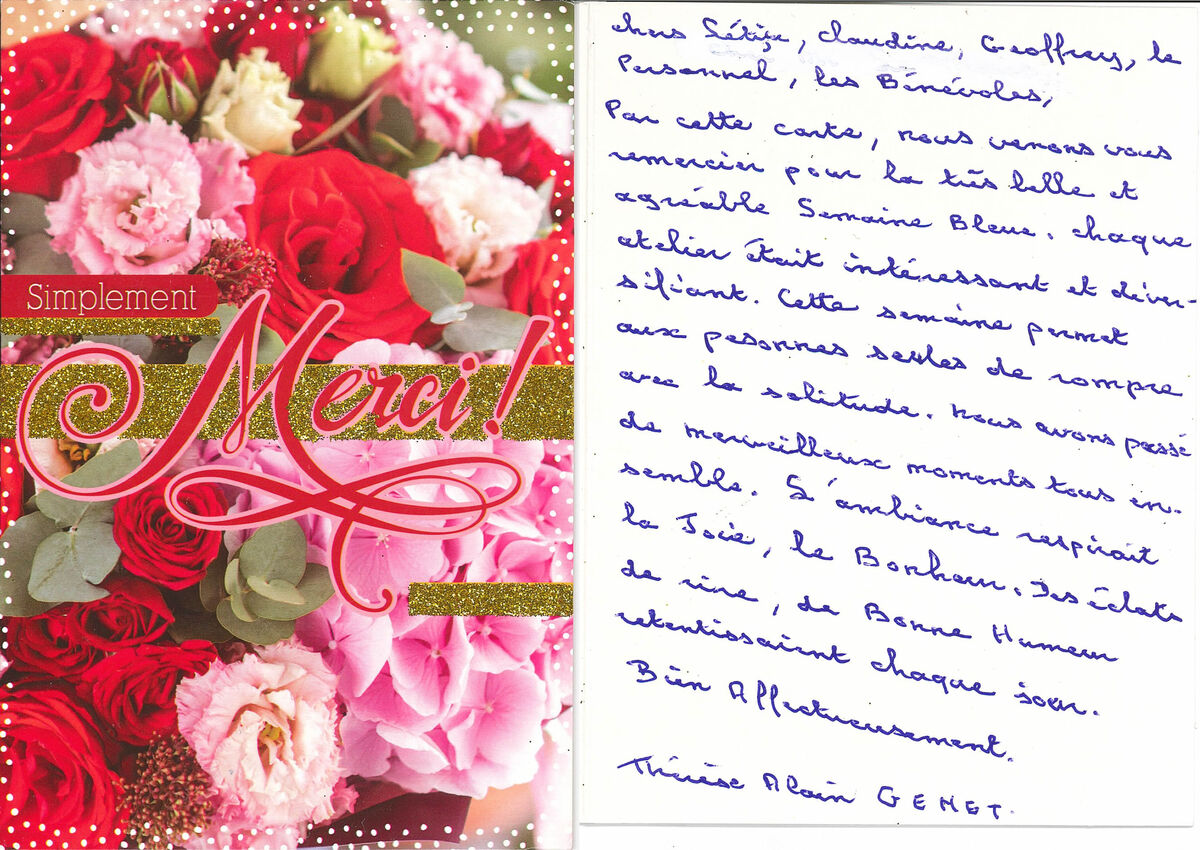 Simplement
Merci!
chers Sétife, Claudine, Geoffrey, le
Personnel, les Bénévoles,
Par cette carte, nous venons vous
remercier pour la très belle et
agréable Semaine Bleue. chaque
atelier était intéressant et diver-
sifiant. Cette semaine permet
aux pesonnes seules de rompre
avec la solitude. Nous avons passé
de merveilleux moments tous en-
semble. L'ambiance respirait
la Joie, le Bonheur. Des éclats
de rire, de Bonne Humeur
retentissaient chaque jour.
Bien Affectueusement.
Thérèse Alain GENET.